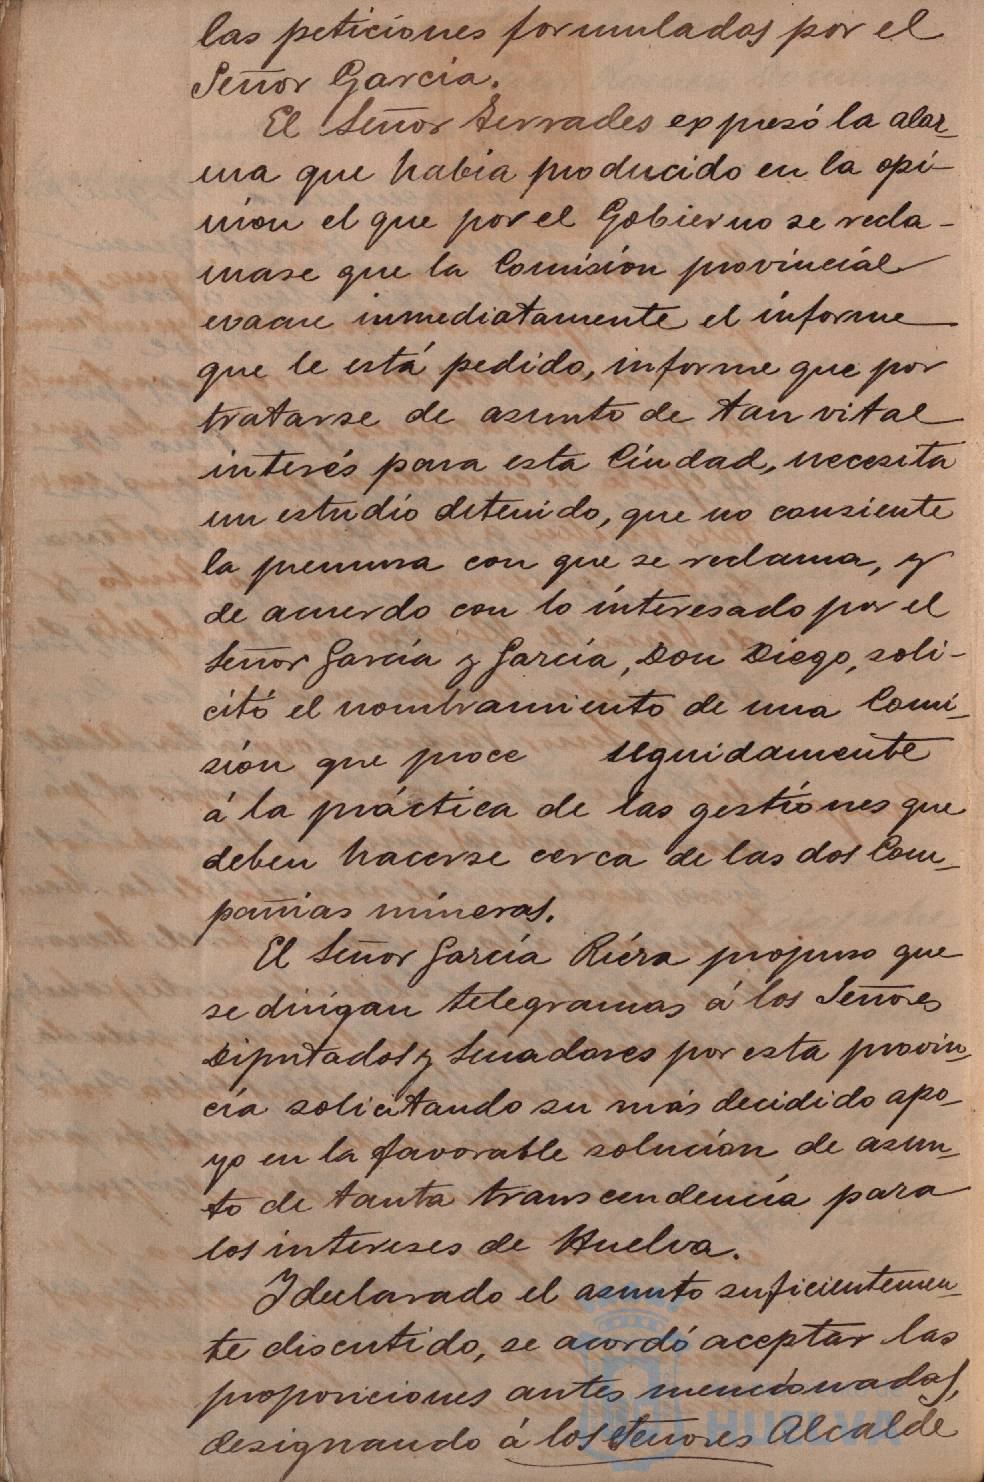 las peticiones formuladas por el
Señor García.
El Señor Serrades expresó la alar-
ma que habia producido en la opi-
nion el que por el Gobierno se recla-
mase que la Comision provincial
evacue inmediatamente el informe
que le está pedido, informe que por
tratarse de asunto de tan vital
interés para esta Ciudad, necesita
un estudio detenido, que no consiente
la premura con que se reclama, y
de acuerdo con lo interesado por el
Señor García y García, Don Diego, soli-
citó el nombramiento de una Comi-
sión que proce seguidamente
á la práctica de las gestiones que
deben hacerse cerca de las dos Com-
pañias mineras.
El Señor García Riera propuso que
se dirigan telegramas á los Señores
Diputados y Senadores por esta provin-
cia solicitando su más decidido apo-
yo en la favorable solucion de asun-
to de tanta transcendencia para
los intereses de Huelva.
I declarado el asunto suficientemen-
te discutido, se acordó aceptar las
proposiciones antes mencionadas,
designando á los Señores Alcalde
HUELVA